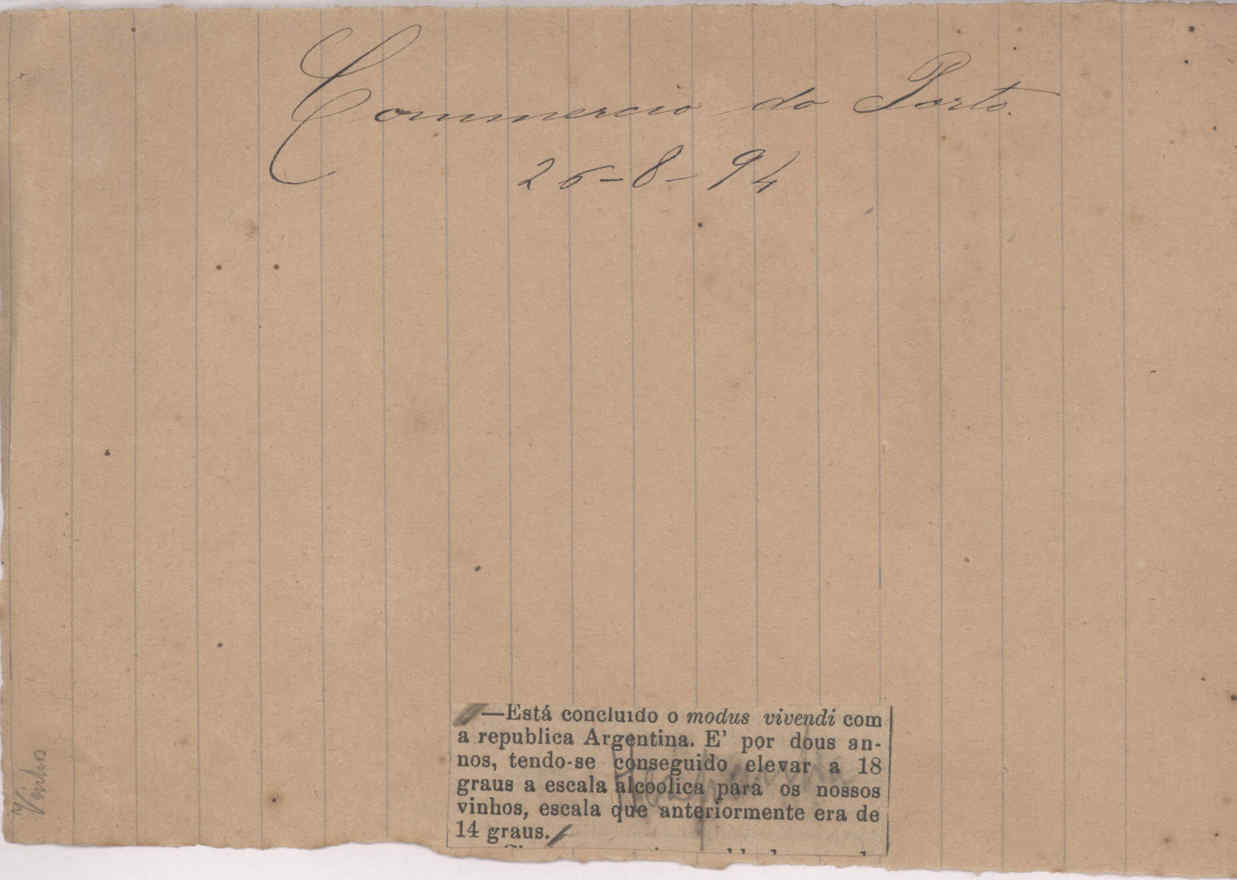 Commercio do Porto.
26-8-94
—Está concluido o modus vivendi com
a republica Argentina. E' por dous an-
nos, tendo-se conseguido elevar a 18
graus a escala alcoolica para os nossos
vinhos, escala que anteriormente era de
14 graus.
Vinho